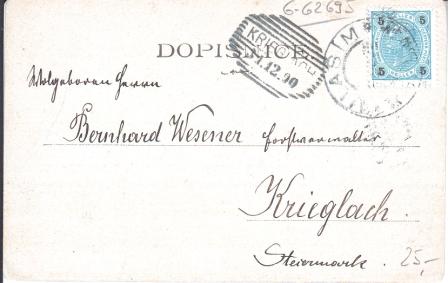 6-62695
DOPISNICE
KRIEGLACH
1.12.00
5 5
5 5
Wolgeboren Herrn
Bernhard Wesener Forstverwalter
Krieglach
Steiermark.
25,-